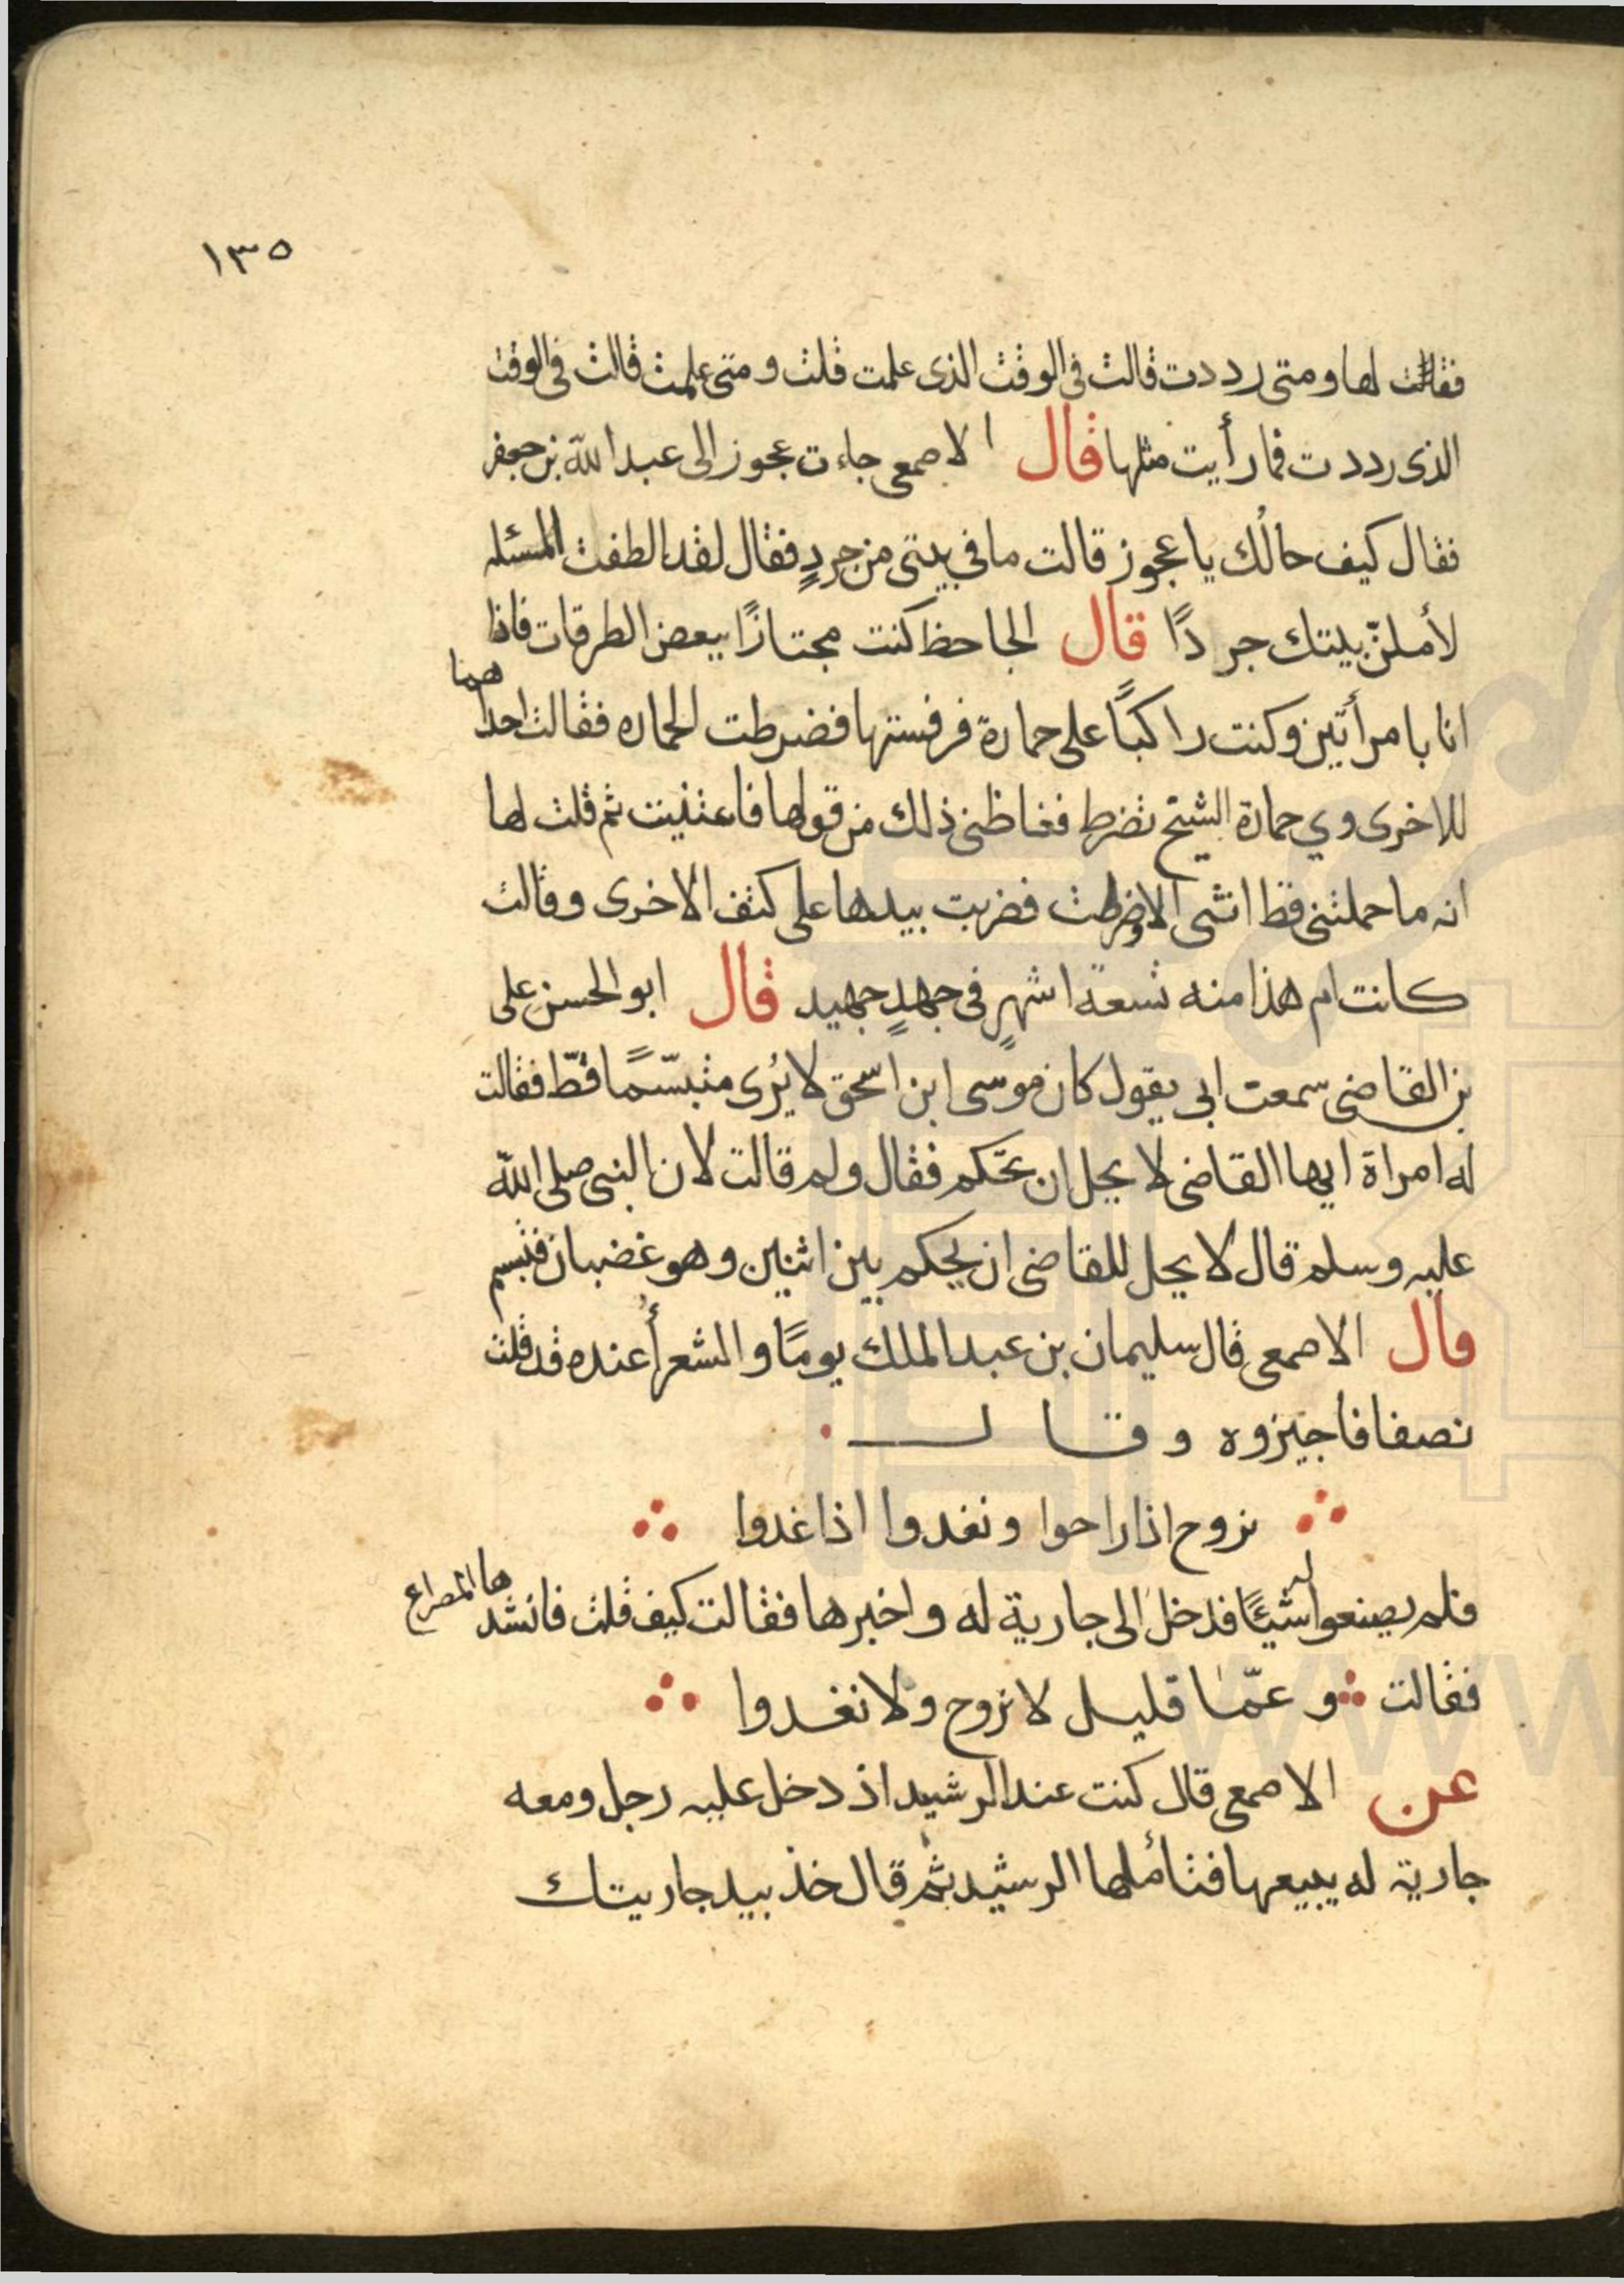 ١٣٥
فقالت لها ومتى رددت قالت فى الوقت الذى علمت قلت ومتى علمت قالت فى الوقت
الذى رددت فما رأيت مثلها قال الاصمعى جاءت عجوز الى عبد الله بن جعفر
فقال كيف حالك يا عجوز قالت ما في بيتى من جردٍ فقال لقد الطفت المسئله
لأملنّ بيتك جردًا قال الجاحظ كنت مجتازًا ببعض الطرقات فاذا
انا بامرأتين وكنت راكبًا على حمارة فرفستها فضرطت الحماره فقالت احداهما
للاخرى وي حمارة الشيخ تضرط فغاظنى ذلك من قولها فاعتنيت ثم قلت لها
انه ما حملتنى قط انثى الا وضرطت فضربت بيدها على كتف الاخرى وقالت
كانت ام هذا منه تسعة اشهرٍ فى جهدٍ جهيد قال ابو الحسن على
بن القاضى سمعت ابى يقول كان موسى ابن اسحق لا يُرى متبسّمًا قطّ فقالت
له امراة ايها القاضى لا يحل ان تحكم فقال ولم قالت لان النبى صلى الله
عليه وسلم قال لا يحل للقاضى ان يحكم بين اثنين وهو غضبان فتبسم
قال الاصمعى قال سليمان بن عبد الملك يومًا والشعرأ عنده قد قلت
نصفا فاجيزوه وقال
نروح اذا راحوا ونغدوا اذا غدوا
فلم يصنعوا له شيئًا فدخل الى جارية له واخبرها فقالت كيف قلت فانشدها المصراع
فقالت وعمّا قليل لا نروح ولا نغدوا
عن الاصمعى قال كنت عند الرشيد اذ دخل عليه رجل ومعه
جارية له يبيعها فتأملها الرشيد ثم قال خذ بيد جاريتك